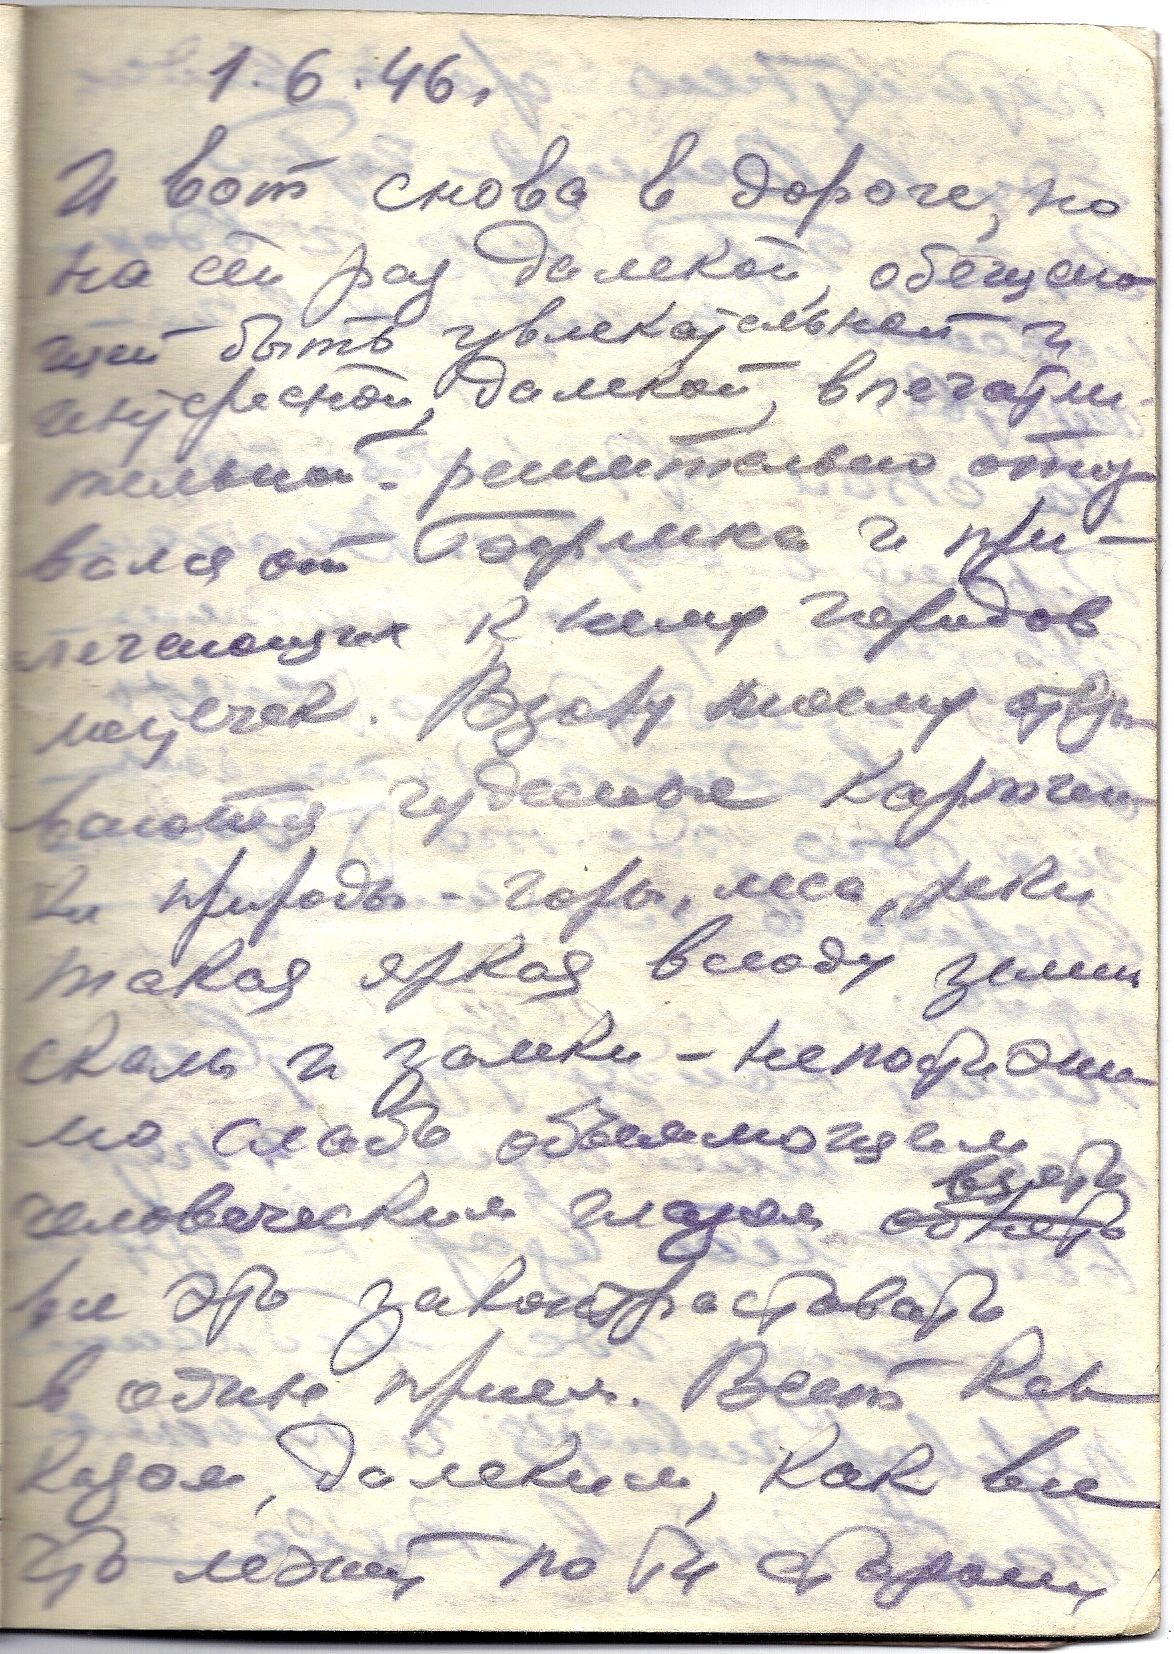 1.6.46.
И вот снова в дороге, но
на сей раз далекой, обещаю-
щей быть увлекательной и
интересной, далекой, впечатли-
тельной. решительно отор-
вался от и при-
легающих к нему городов
местечек. Взору моему откры-
ваются чудесные картин-
ки природы - горы, леса, реки
такая яркая всюду зелень
скалы и замки - непостижи-
мо слабо объемлющим
человеческим глазом взять
все это законтрастовать
в один прием. Веет Кав-
казом, далеким, как все
что лежит по ту сторону